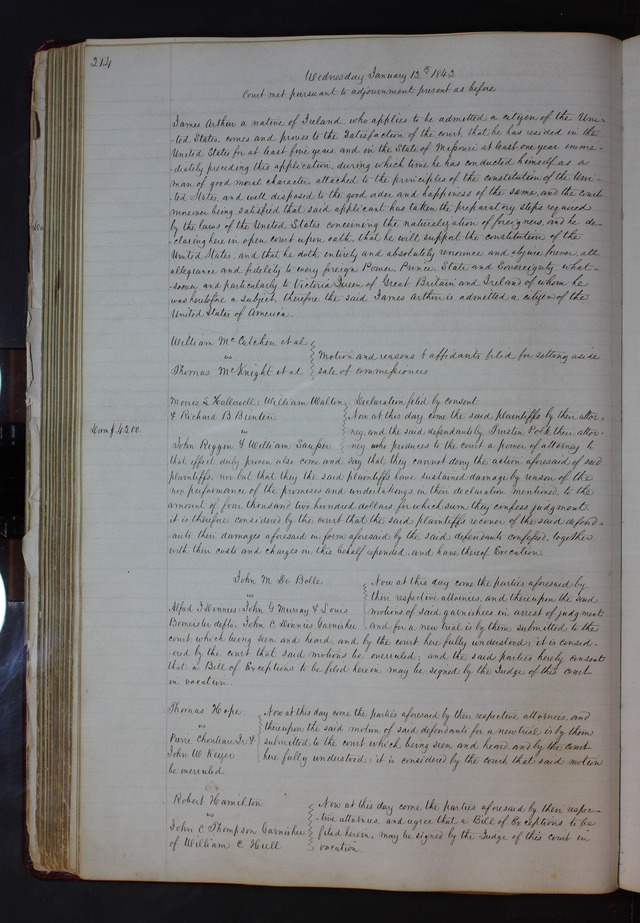 214
Wednesday January 12th 1842
Court met pursuant to adjournment present as before
James Arthur a native of Ireland, who applies to be admitted a citizen of the Uni-
-ted States, comes and proves to the Satisfaction of the court, that he has resided in the
United States for at least five years, and in the State of Missouri at least one year imme-
-diately preceding this application, during which time he has conducted himself as a
man of good moral character, attached to the principles of the constitution of the Uni-
-ted States, and well disposed to the good order and happiness of the same, and the court
moreover being satisfied that said applicant has taken the preparatory steps required
by the laws of the United States concerning the naturalization of foreigners, and he de-
-claring here in open court upon oath, that he will support the constitution of the
United States, and that he doth entirely and absolutely renounce and abjure forever, all
allegiance and fidelity to every foreign Power, Prince State and Sovereignty what-
-soever, and particularly to Victoria Queen of Great Britain and Ireland of whom he
was heretofore a subject, therefore the said James Arthur is admitted a citizen of the
United States of America.
William McCutchen et al
vs
Motion and reasons & affidavits filed for setting aside
Thomas McKnight et al
sale of commissioners
Morris L Hallowell, William Walton
Declaration filed by consent
& Richard B Bunten
Now at this day come the said plaintiffs by their attor-
Dam $4200.
vs
ney, and the said defendants by Trusten Polk their attor-
John Riggin & William Sawyer
ney who produces to the court a power of attorney to
that effect duly proven also come and say that they cannot deny the action aforesaid of said
plaintiffs, nor but that they the said plaintiffs have sustained damage by reason of the
non performance of the promises and undertakings in their declaration mentioned to the
amount of four thousand two hundred dollars, for which sum they confess judgment.
it is therefore considered by the court that the said plaintiffs recover of the said defend-
-ants their damages aforesaid in form aforesaid by the said defendants confessed, together
with their costs and charges in this behalf expended, and have thereof Execution.
John M. De Bolle
Now at this day come the parties aforesaid by
vs
their respective attornies, and thereupon the said
Alfred J Vonnies, John G Murray & Louis
motions of said garnishees in arrest of judgment
Bomeisler defts, John C Vonnies Garnishee
and for a new trial is by them submitted to the
court which being seen and heard, and by the court here fully understood; it is consid-
-ered by the court that said motions be overruled; and the said parties hereby consent
that a Bill of Exceptions to be filed herein may be signed by the Judge of this court
in vacation.
Thomas Hope
Now at this day come the parties aforesaid by their respective attornies, and
vs
thereupon the said motion of said defendants for a new trial is by them
Pierre Chouteau Jr. &
submitted to the court which being seen and heard, and by the court
John W Keyser
here fully understood; it is considered by the court that said motion
be overruled
Robert Hamilton
Now at this day come the parties aforesaid by their respec-
vs
-tive attornies, and agree that a Bill of Exceptions to be
John C Thompson Garnishee
filed herein, may be signed by the Judge of this court in
of William C Hull
vacation.